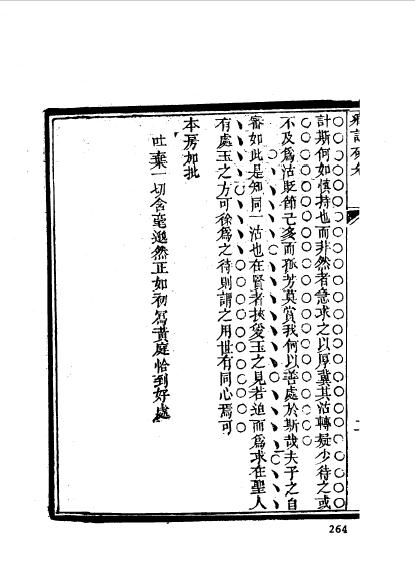 計斯何如慎持也而非然者急求之以厚冀其沽轉疑少待之或
不及為沽貶節已多而孤芳莫賞我何以善處於斯哉夫子之自
審如此是知同一沽也在賢者挾愛玉之見若迫而為求在聖人
有處玉之方可徐為之待則謂之用世有同心焉可
本房加批
吐棄一切含毫邈然正如初寫黃庭恰到好處
264